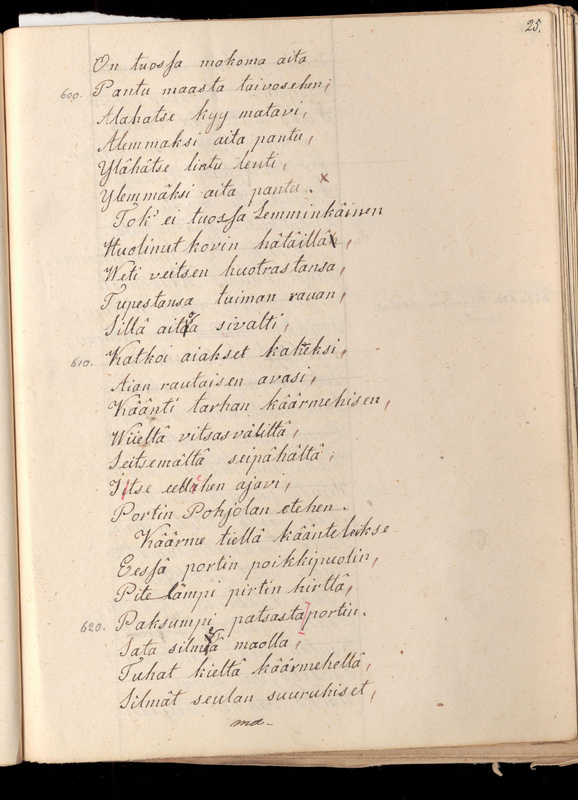 25.
On tuossa mokoma aita
600. Pantu maasta taivosehen;
Alahatse kyy matavi,
Alemmaksi aita pantu,
Ylähätse lintu lenti,
Ylemmäksi aita pantu. x
Tok' ei tuossa Lemminkäinen
Huolinut kovin hätäillä,
Weti veitsen huotrastansa,
Tupestansa tuiman rauan,
Sillä aitoa sivalti,
610. Katkoi aiakset kaheksi,
Aian rautaisen avasi,
Käänti tarhan käärmehisen,
Wiieltä vitsasväliltä,
Seitsemältä seipähältä;
Itse eellähen ajavi,
Portin Pohjolan etehen.
Käärme tiellä käänteleikse
Eessä portin poikkipuolin,
Pitempi pirtin hirttä,
620. Paksumpi patsasta portin.
Sata silmeä maolla,
Tuhat kieltä käärmehellä,
Silmät seulan suuruhiset,
ma-